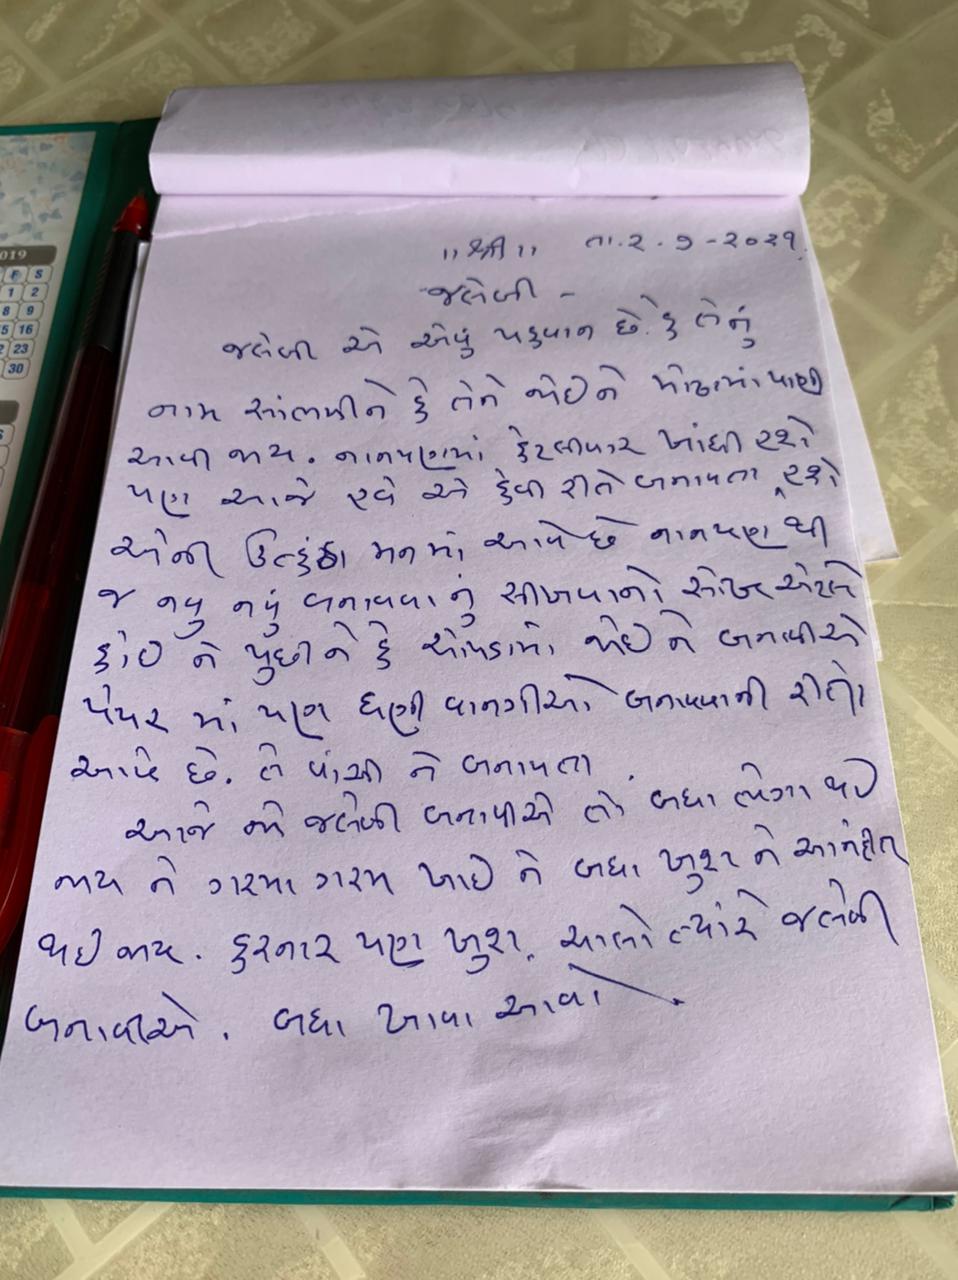 ॥ શ્રી ॥ તા.૨.૭-૨૦૨૧
જલેબી -
જલેબી એ એવું પકવાન છે. કે તેનું
નામ સાંભળીને કે તેને જોઇને મોઢામાં પાણી
આવી જાય. નાનપણમાં કેટલીવાર ખાધી હશે
પણ આજે હવે એ કેવી રીતે બનાવતા હશે
એની ઉત્કંઠા મનમાં આવે છે નાનપણ થી
જ નવુ નવું બનાવવાનું શીખવાનો શોખ એટલે
કોઇ ને પુછીને કે ચોપડામાં જોઇ ને બનાવીએ
પેપર માં પણ ઘણી વાનગીઓ બનાવવાની રીતો
આવે છે. તે વાંચી ને બનાવતા.
આજે જો જલેબી બનાવીએ તો બધા ભેગા થઇ
જાય ને ગરમા ગરમ ખાઇ ને બધા ખુશ ને આનંદીત
થઇ જાય. કરનાર પણ ખુશ. ચાલો ત્યારે જલેબી
બનાવીએ. બધા ખાવા આવો
2019
F S
1 2
8 9
15 16
22 23
30